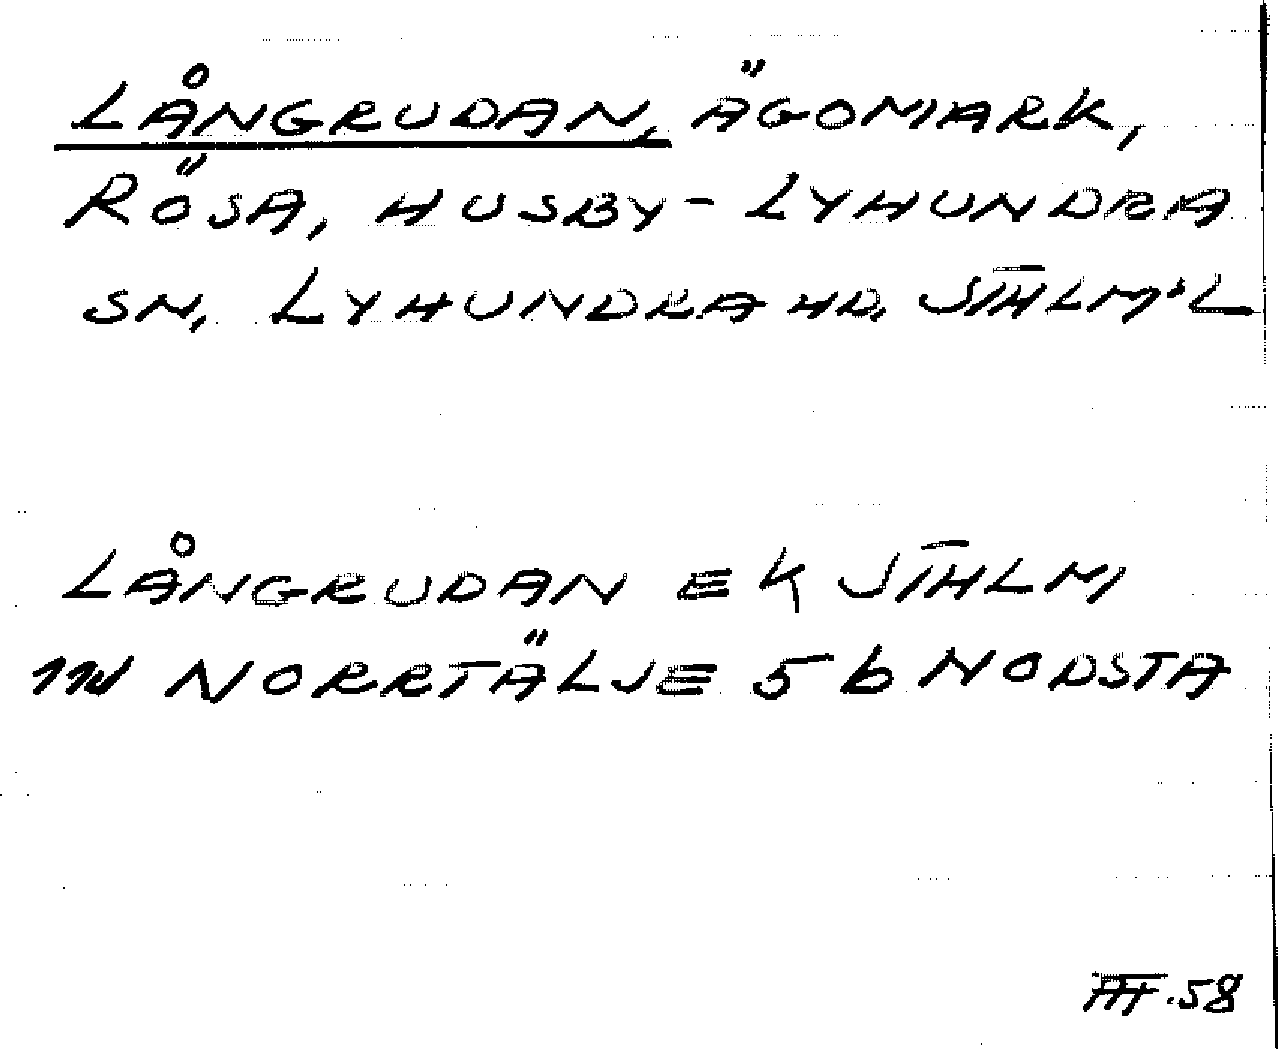 LÅNGRUDAN, ÄGOMARK,
RÖSA, HUSBY-LYHUNDRA
SN, LYHUNDRA HD, STHLMS L
LÅNGRUDAN EK STHLM
NORRTÄLJE 5 b NODSTA
58